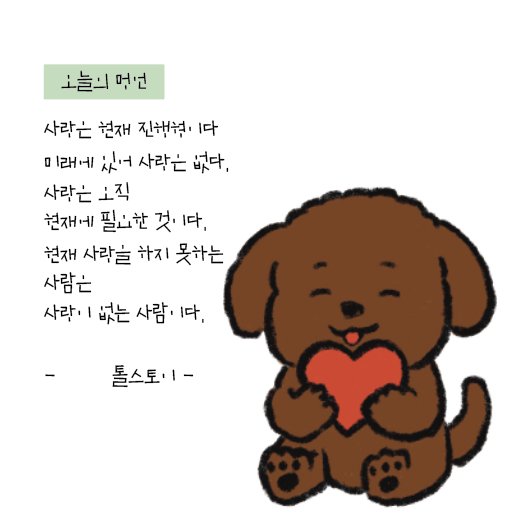 오늘의 명언
사랑은 현재 진행형이다
미래에 있어 사랑은 없다.
사랑은 오직
현재에 필요한 것이다.
현재 사랑을 하지 못하는
사람은
사랑이 없는 사람이다.
- 톨스토이 -